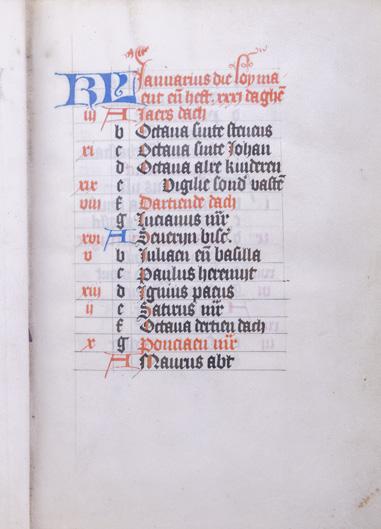 KL Januarius die loyma
ent eñ heft .xxxi daghē
iij A Jaers dach
b Octaua sinte steuens
xi c Octaua sinte Johan
d Octaua alre kinderen
xix e Vigilie sond' vastē
viij f Dertiende dach
g Lucianus mr̄
xvi A Seueryn bisc
v b Juliaen eñ basilla
c Paulus heremijt
xiij d
ij e Satirus mr̄
f Octaua dertien dach
x g Ponciaen mr̄
A Maurus abt